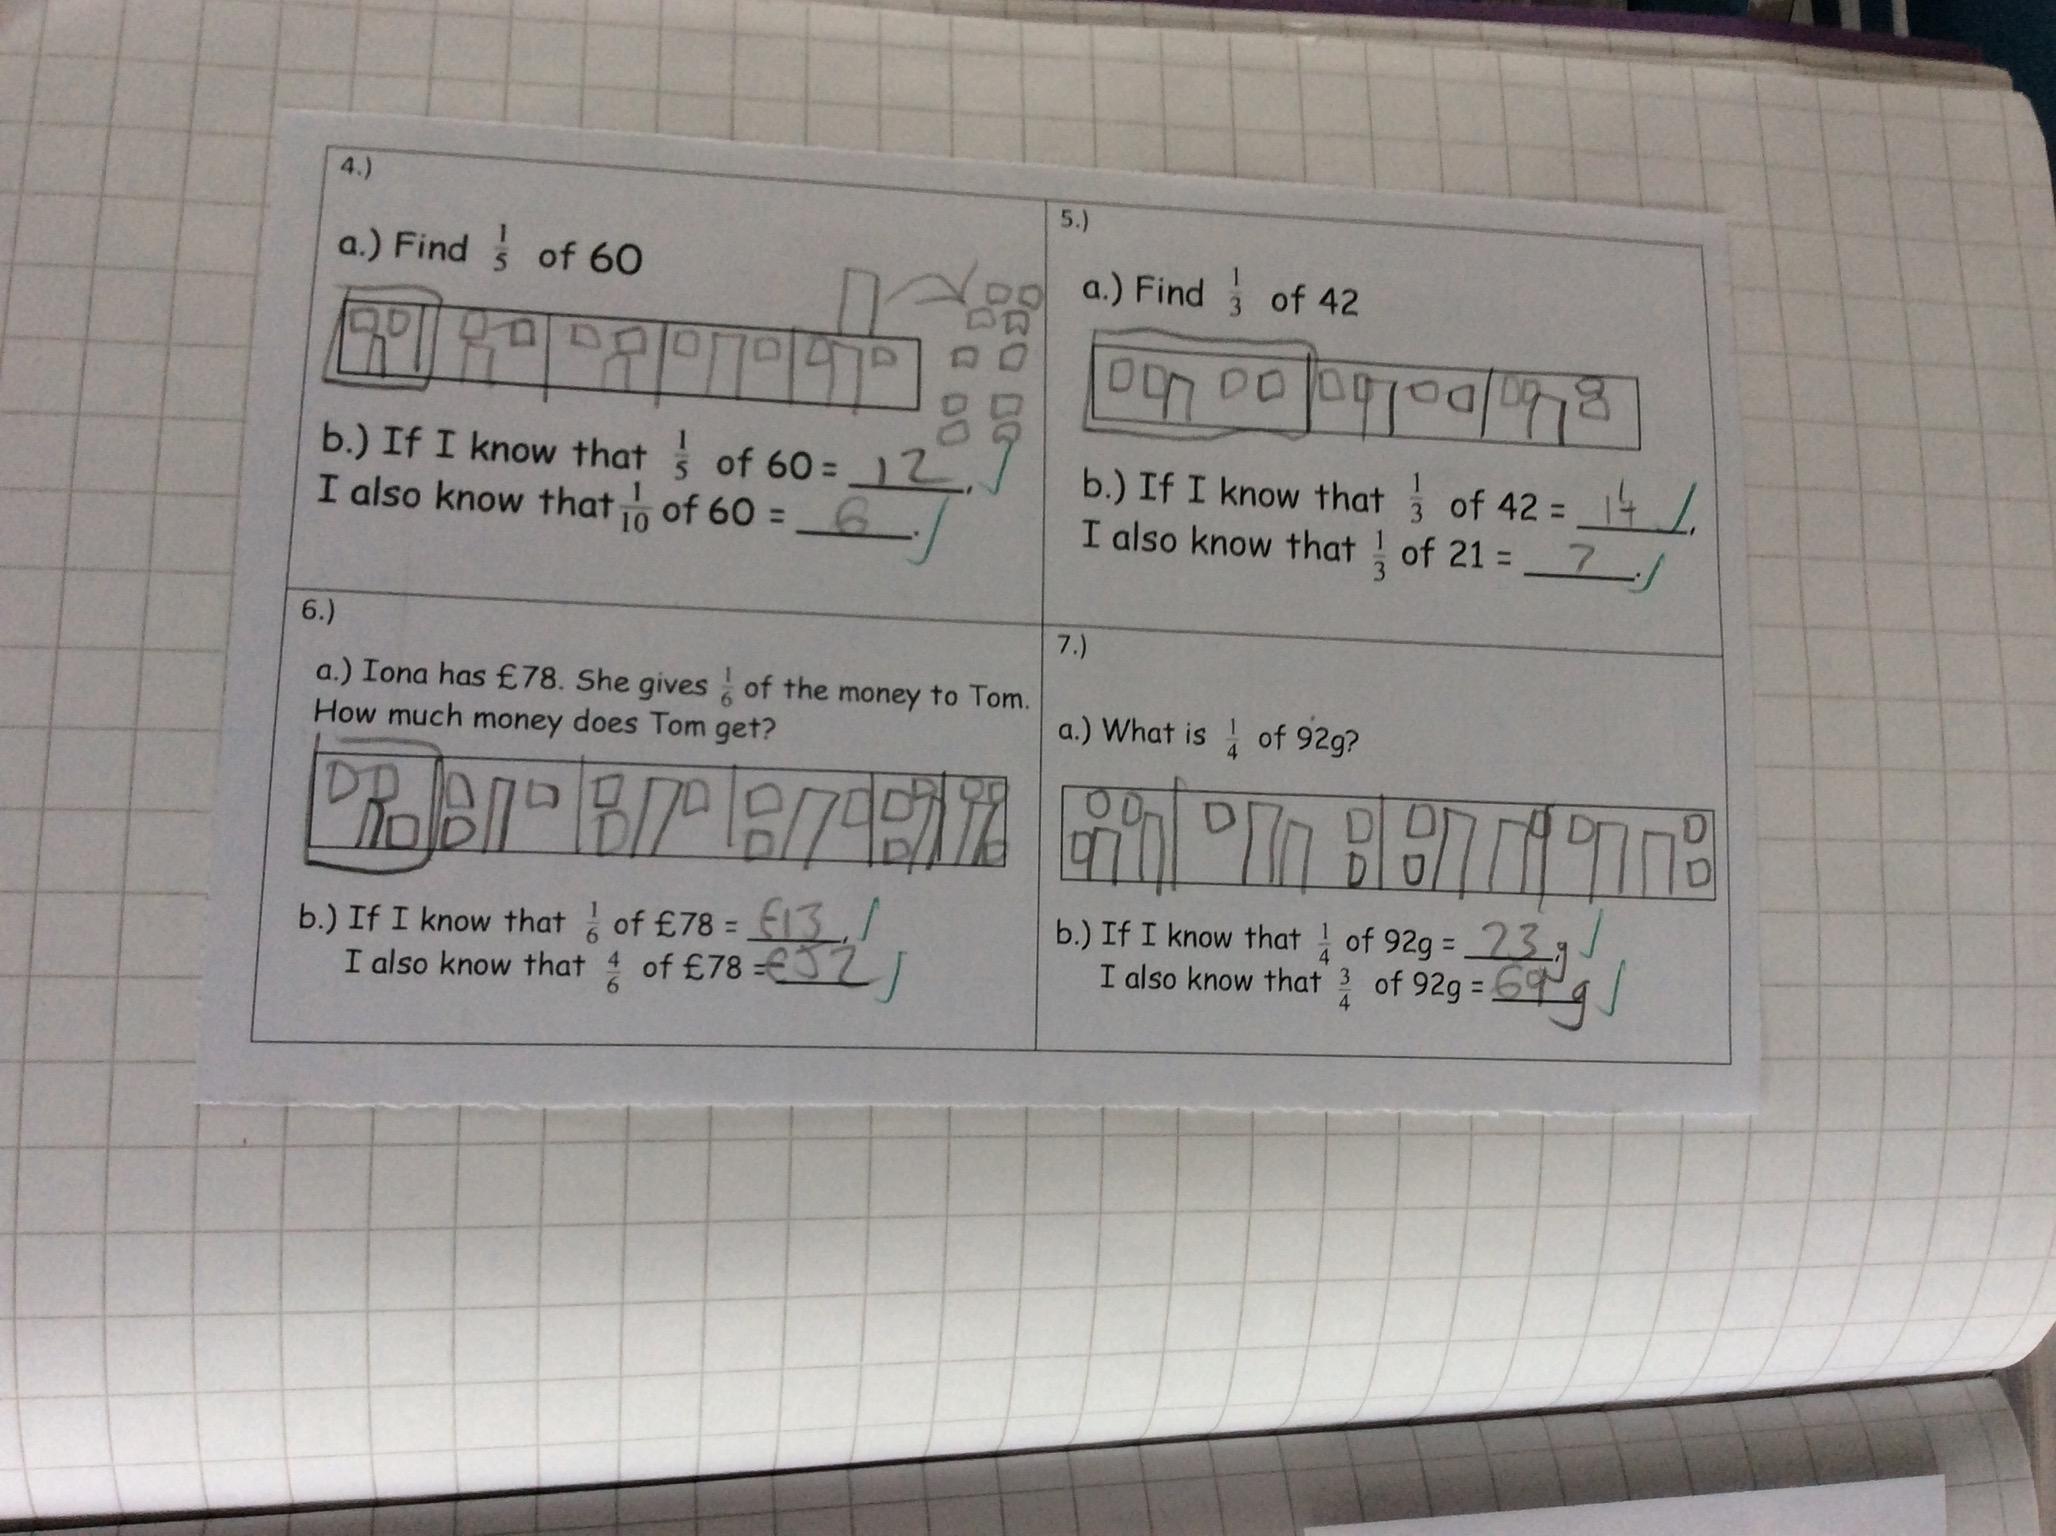 4.)
a.) Find 1/5 of 60
b.) If I know that 1/5 of 60 = 12.
I also know that 1/10 of 60 = 6.
5.)
a.) Find 1/3 of 42
b.) If I know that 1/3 of 42 = 14,
I also know that 1/3 of 21 = 7.
6.)
a.) Iona has £78. She gives 1/6 of the money to Tom.
How much money does Tom get?
b.) If I know that 1/6 of £78 = £13,
I also know that 4/6 of £78 = £52
7.)
a.) What is 1/4 of 92g?
b.) If I know that 1/4 of 92g = 23g
I also know that 3/4 of 92g = 69g